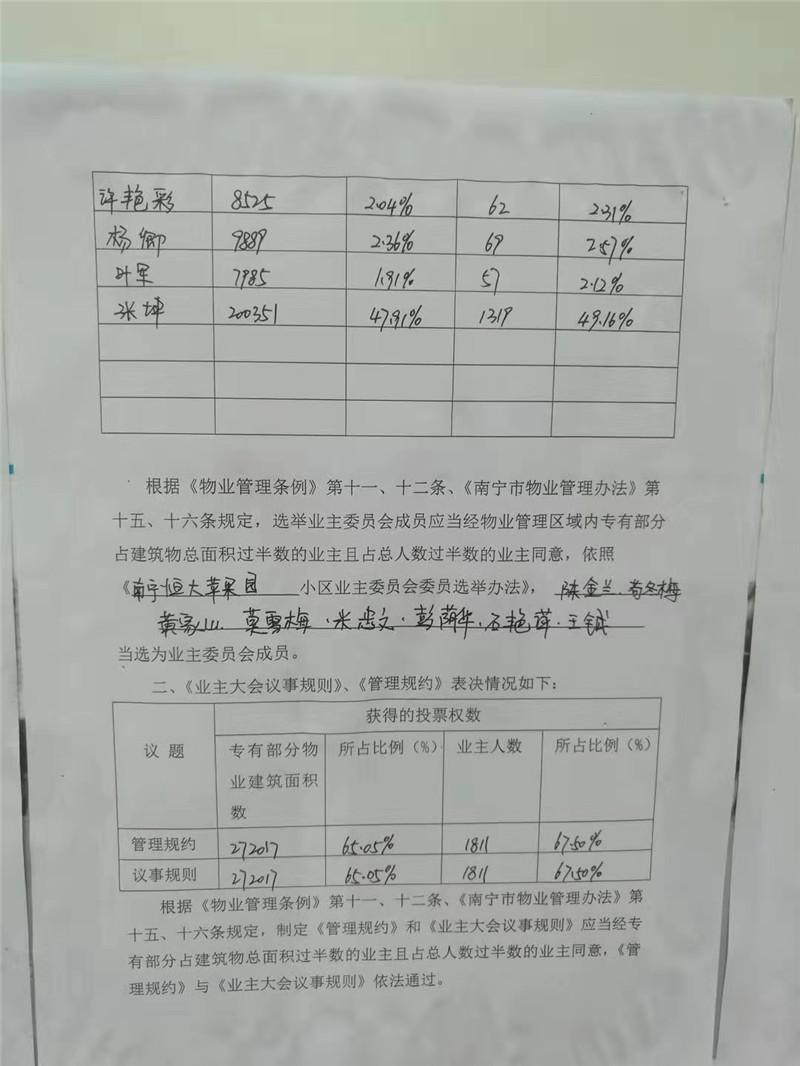 许艳彩 8525 2.04% 62 2.31%
杨卿 9889 2.36% 69 2.57%
叶军 7985 1.91% 57 2.12%
张坤 200351 47.91% 1319 49.16%
根据《物业管理条例》第十一、十二条、《南宁市物业管理办法》第
十五、十六条规定，选举业主委员会成员应当经物业管理区域内专有部分
占建筑物总面积过半数的业主且占总人数过半数的业主同意，依照
《南宁恒大苹果园 小区业主委员会委员选举办法》， 陈金兰、
莫雪梅、米忠文、彭荫华、石艳萍、王铖
当选为业主委员会成员。
二、《业主大会议事规则》、《管理规约》表决情况如下：
议 题 获得的投票权数
专有部分物 所占比例（%） 业主人数 所占比例（%）
业建筑面积
数
管理规约 272017 65.05% 1811 67.50%
议事规则 272017 65.05% 1811 67.50%
根据《物业管理条例》第十一、十二条、《南宁市物业管理办法》第
十五、十六条规定，制定《管理规约》和《业主大会议事规则》应当经专
有部分占建筑物总面积过半数的业主且占总人数过半数的业主同意，《管
理规约》与《业主大会议事规则》依法通过。